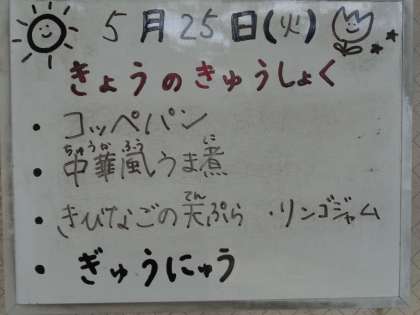 5月25日(火)
きょうのきゅうしょく
・コッペパン
・中華風うま煮
・きびなごの天ぷら ・リンゴジャム
・ぎゅうにゅう